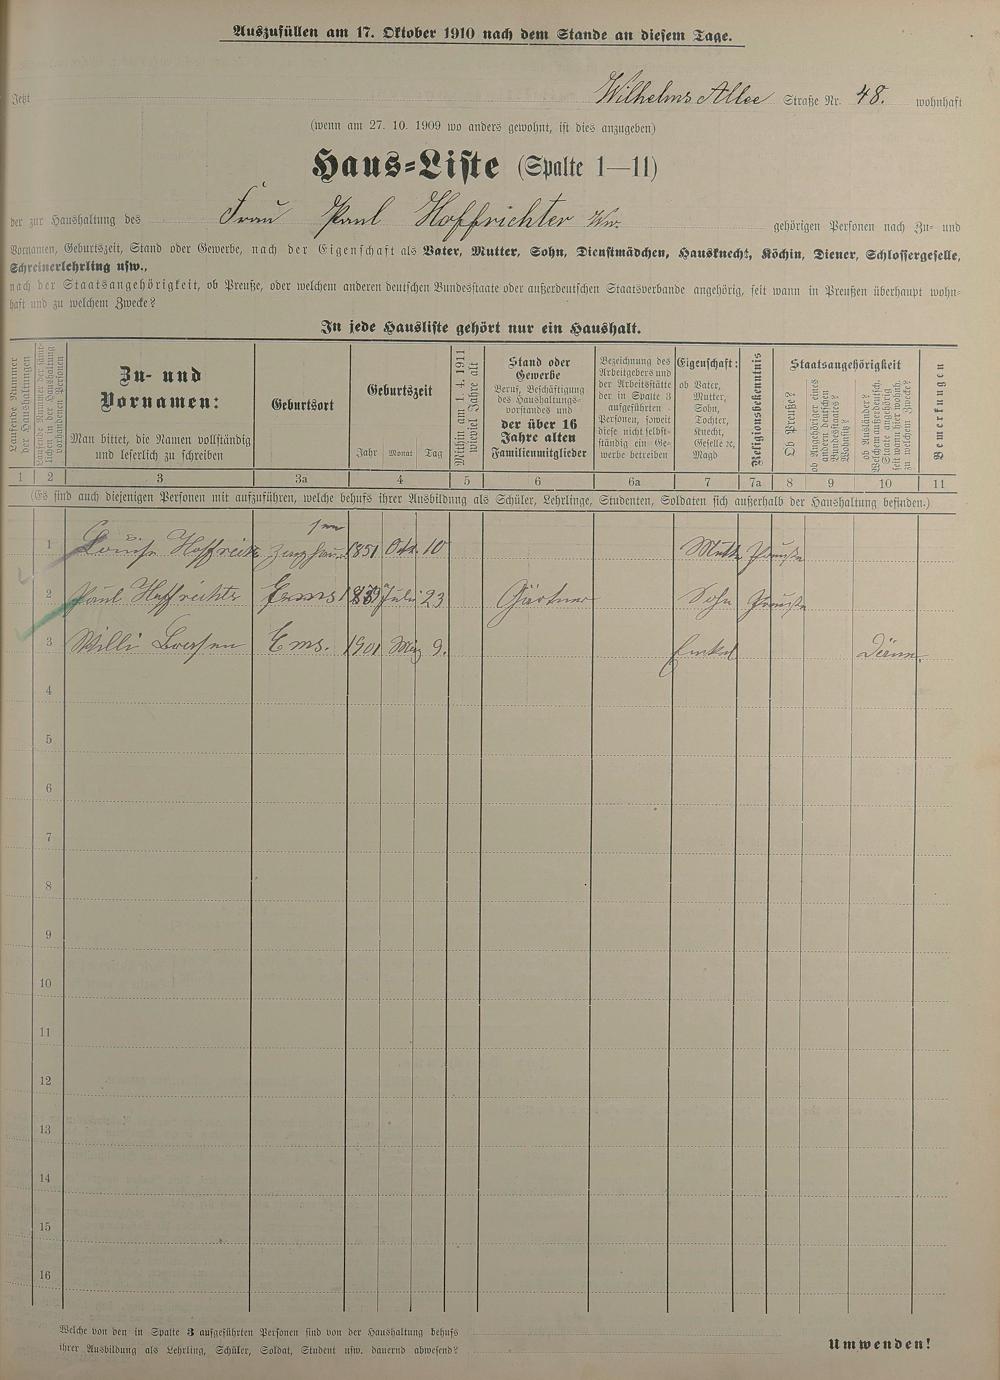 Auszufüllen am 17. Oktober 1910 nach dem Stande an diesem Tage.
Jetzt Wilhelms Allee Straße Nr. 48. wohnhaft
(wenn am 27. 10. 1909 wo anders gewohnt, ist dies anzugeben)
Haus-Liste (Spalte 1—11)
der zur Haushaltung des Frau Paul Hoffrichter Ww. gehörigen Personen nach Zu- und
Vornamen, Geburtszeit, Stand oder Gewerbe, nach der Eigenschaft als Vater, Mutter, Sohn, Dienstmädchen, Hausknecht, Köchin, Diener, Schlossergeselle,
Schreinerlehrling usw.,
nach der Staatsangehörigkeit, ob Preuße, oder welchem anderen deutschen Bundesstaate oder außerdeutschen Staatsverbande angehörig, seit wann in Preußen überhaupt wohn-
haft und zu welchem Zwecke?
In jede Hausliste gehört nur ein Haushalt.
Laufende Nummer
der Haushaltungen
Laufende Nummer der sämt-
lichen in der Haushaltung
vorhandenen Personen
Zu- und
Vornamen:
Man bittet, die Namen vollständig
und leserlich zu schreiben
Geburtsort
Geburtszeit
Jahr Monat Tag
Mithin am 1. 4. 1911
wieviel Jahre alt
Stand oder
Gewerbe
Beruf, Beschäftigung
des Haushaltungs-
vorstandes und
der über 16
Jahre alten
Familienmitglieder
Bezeichnung des
Arbeitgebers und
der Arbeitsstätte
der in Spalte 3
aufgeführten
Personen, soweit
diese nicht selbst-
ständig ein Ge-
werbe betreiben
Eigenschaft:
ob Vater,
Mutter,
Sohn,
Tochter,
Knecht,
Geselle ec.
Magd
Religionsbekenntnis
Staatsangehörigkeit
Ob Preuße?
ob Angehöriger eines
andern deutschen
Bundesstaates?
Wohnsitz?
ob Ausländer?
Welchem außerdeutsch.
Staate angehörig
seit wann hier wohnh.
zu welchem Zwecke?
Bemerkungen
1 2 3 3a 4 5 6 6a 7 7a 8 9 10 11
(Es sind auch diejenigen Personen mit aufzuführen, welche behufs ihrer Ausbildung als Schüler, Lehrlinge, Studenten, Soldaten sich außerhalb der Haushaltung befinden.)
1 Louise 1851 Okt. 10 Mutter
2 Paul Hoffrichter Ems Juli 23 Gärtner Sohn
3 Willi Ems. 1901 März 9. Enkel
4
5
6
7
8
9
10
11
12
13
14
15
16
Welche von den in Spalte 3 aufgeführten Personen sind von der Haushaltung behufs
ihrer Ausbildung als Lehrling, Schüler, Soldat, Student usw. dauernd abwesend?
Umwenden!